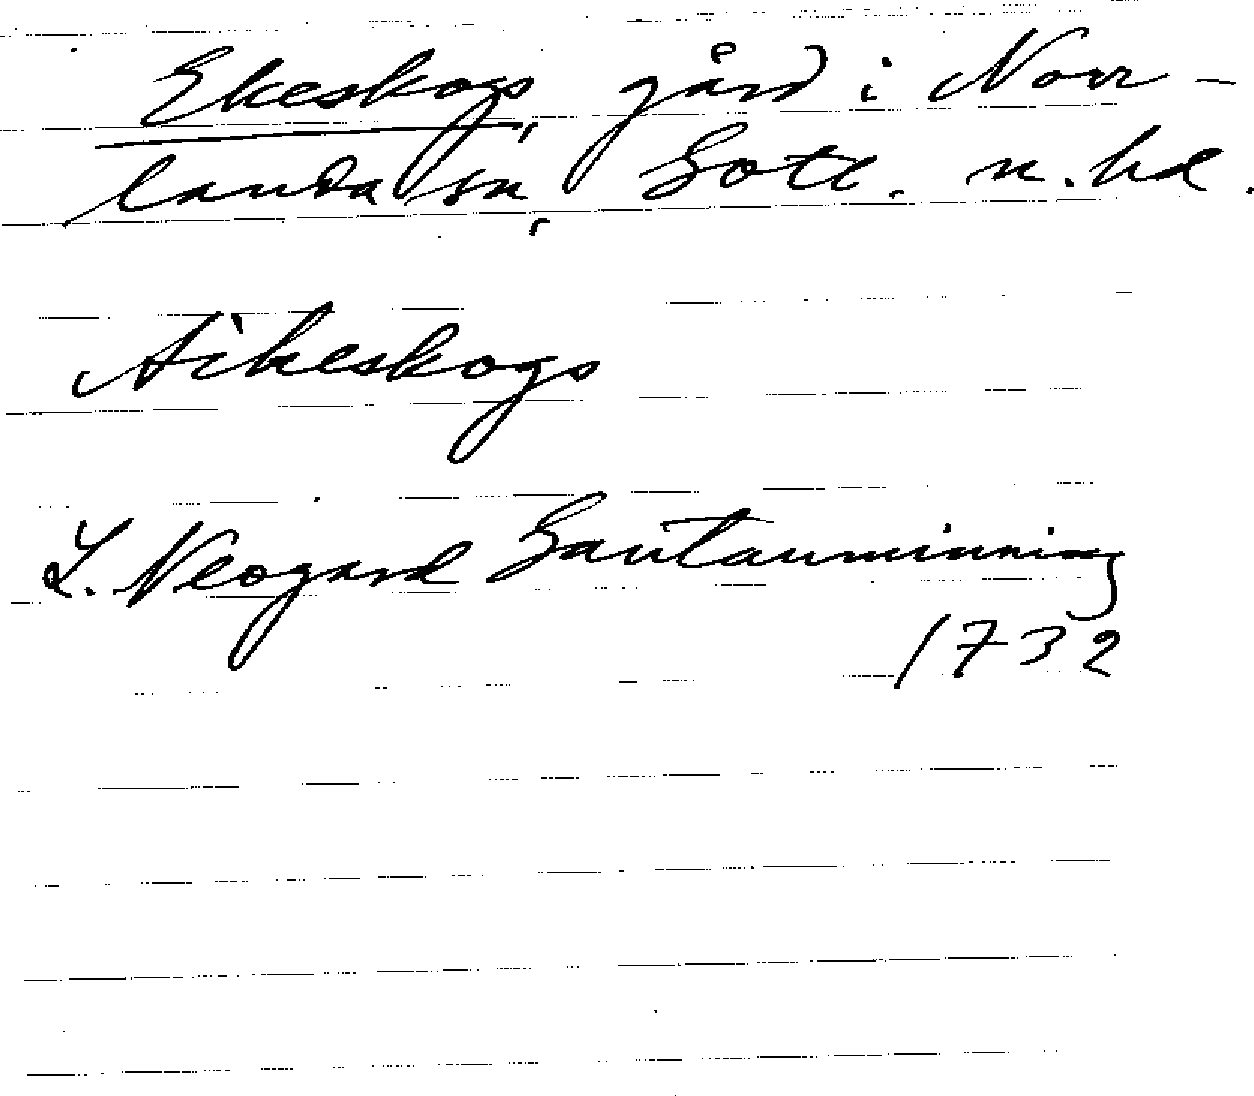 Ekeskogs, gård i Norr-
landa sn, Gotl. n. hd.
Aikeskogs
L. Neogard Gautauminning
1732